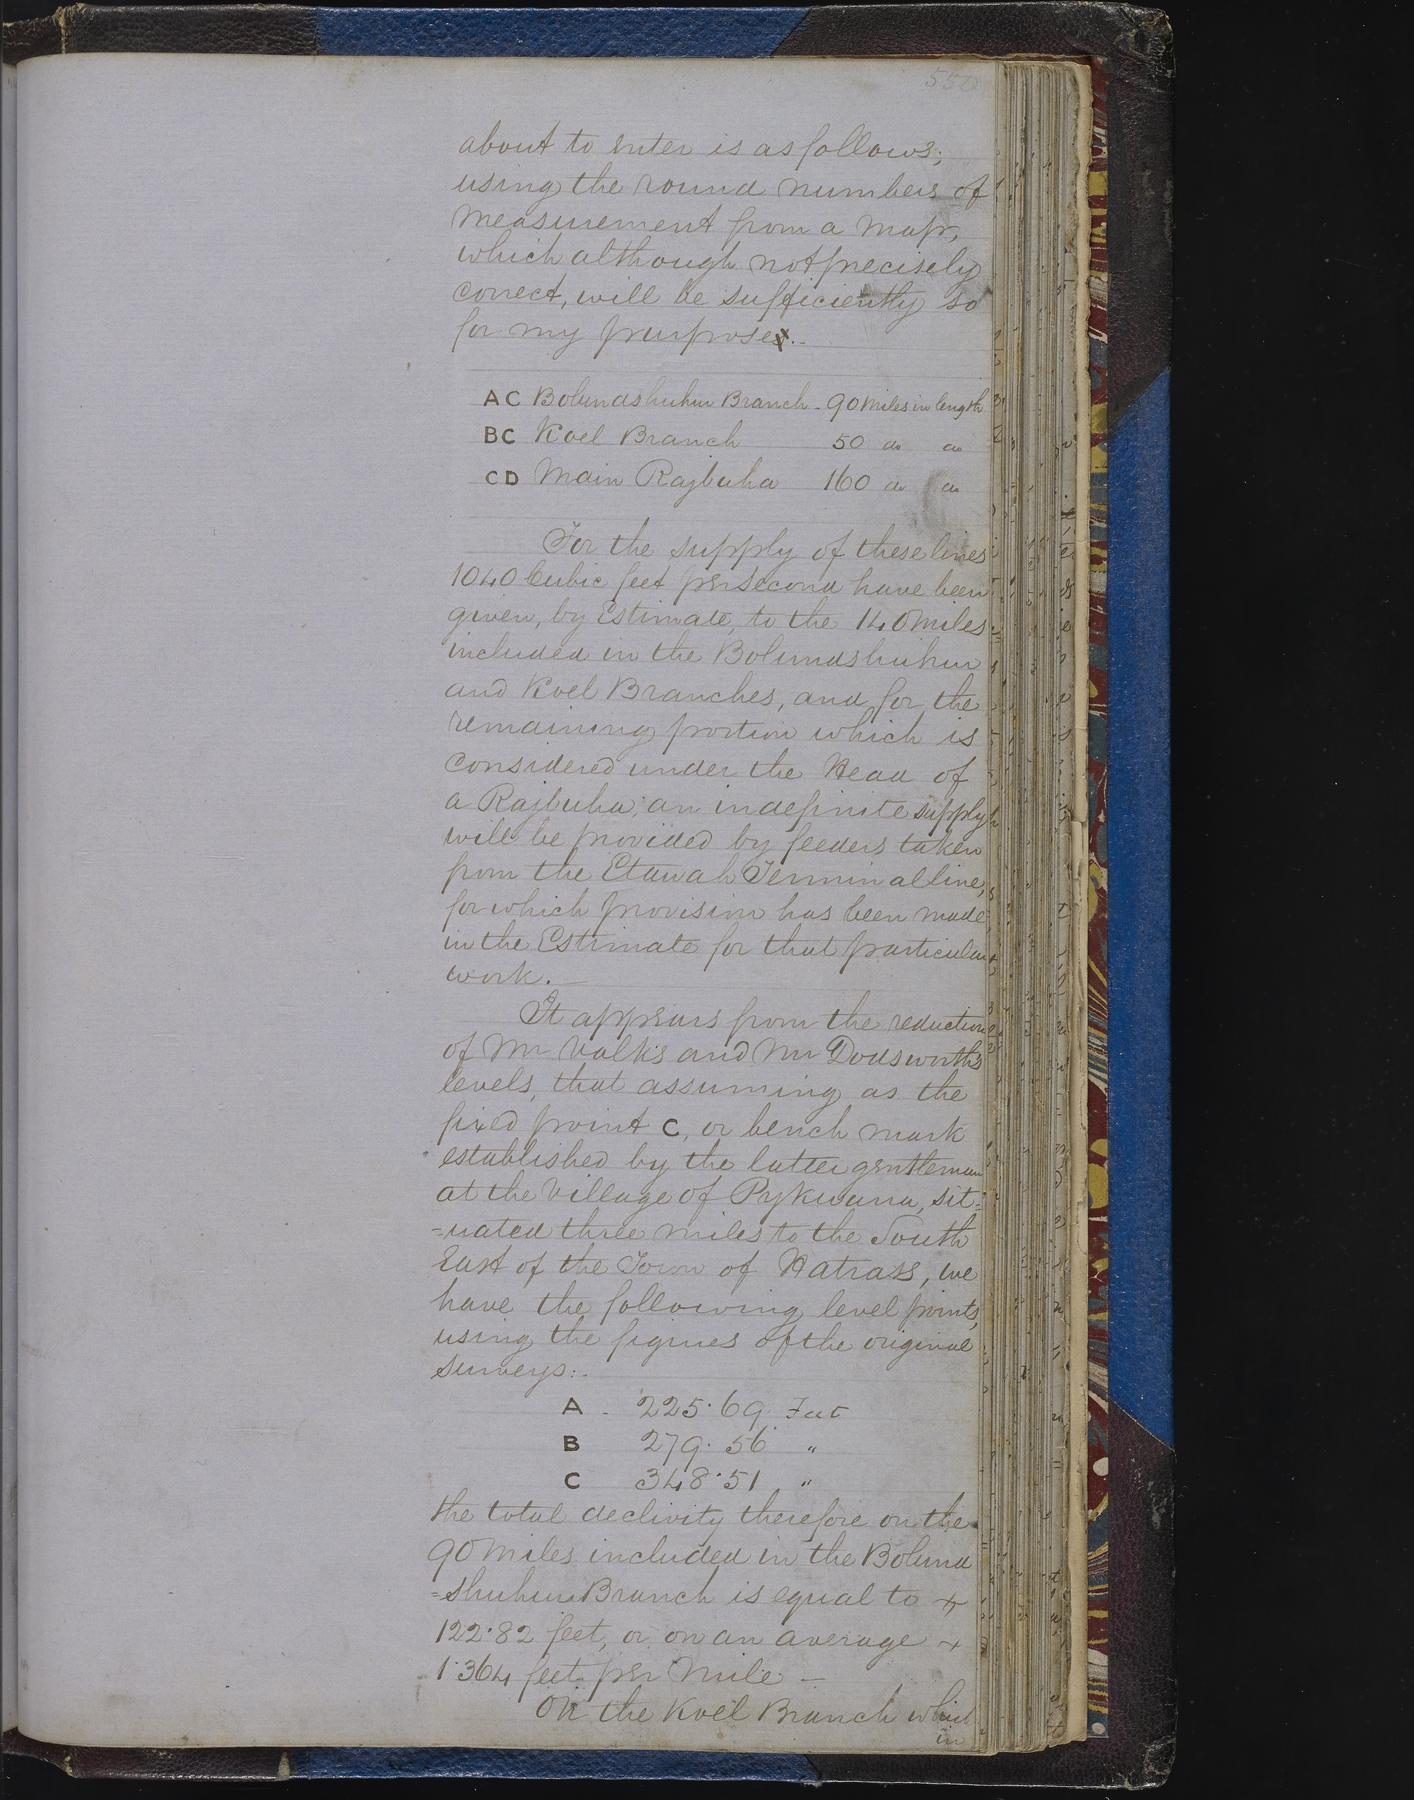 550
about to enter is as follows;
using the round numbers of
measurement from a map,
which although not precisely
correct, will be sufficiently so
for my purpose.
AC Bolundshuhur Branch - 90 miles in length
BC Koel Branch 50 do do
CD Main Rajbuha 160 do do
For the supply of these lines
1040 Cubic feet per second have been
given, by Estimate, to the 140 miles
included in the Bolundshuhur
and Koel Branches, and for the
remaining portion which is
considered under the Head of
a Rajbuha; an indefinite supply
will be provided by feeders taken
from the Etawah Terminal line,
for which provision has been made
in the Estimate for that particular
work. -
It appears from the reduction
of Mr Volk's and Mr Dodsworth's
levels, that assuming as the
fixed point C, or bench mark
established by the latter gentleman
at the Village of Pykwana, sit=
=uated three miles to the South
East of the Town of Hatrass, we
have the following level points,
using the figures of the original
surveys:-
A - 225.69 Feet
B 279.56 "
C 348.51 "
the total declivity therefore on the
90 miles included in the Bolund
=shuhur Branch is equal to +
122.82 feet, or on an average +
1.364 feet per mile -
On the Koel Branch which
in